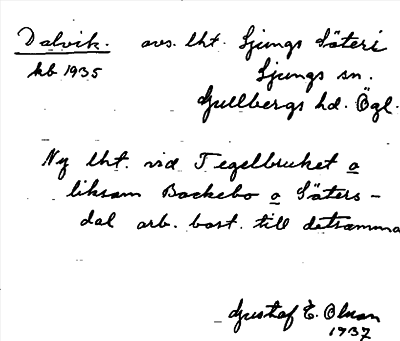 Dalvik. avs. lht. Ljungs Säteri
kb 1935 Ljungs sn.
Gullbergs hd. Ögl.
Ny lht. vid Tegelbruket o
liksom Backebo o Säters-
dal arb. bost. till detsamma
Gustaf E. Olson
1937